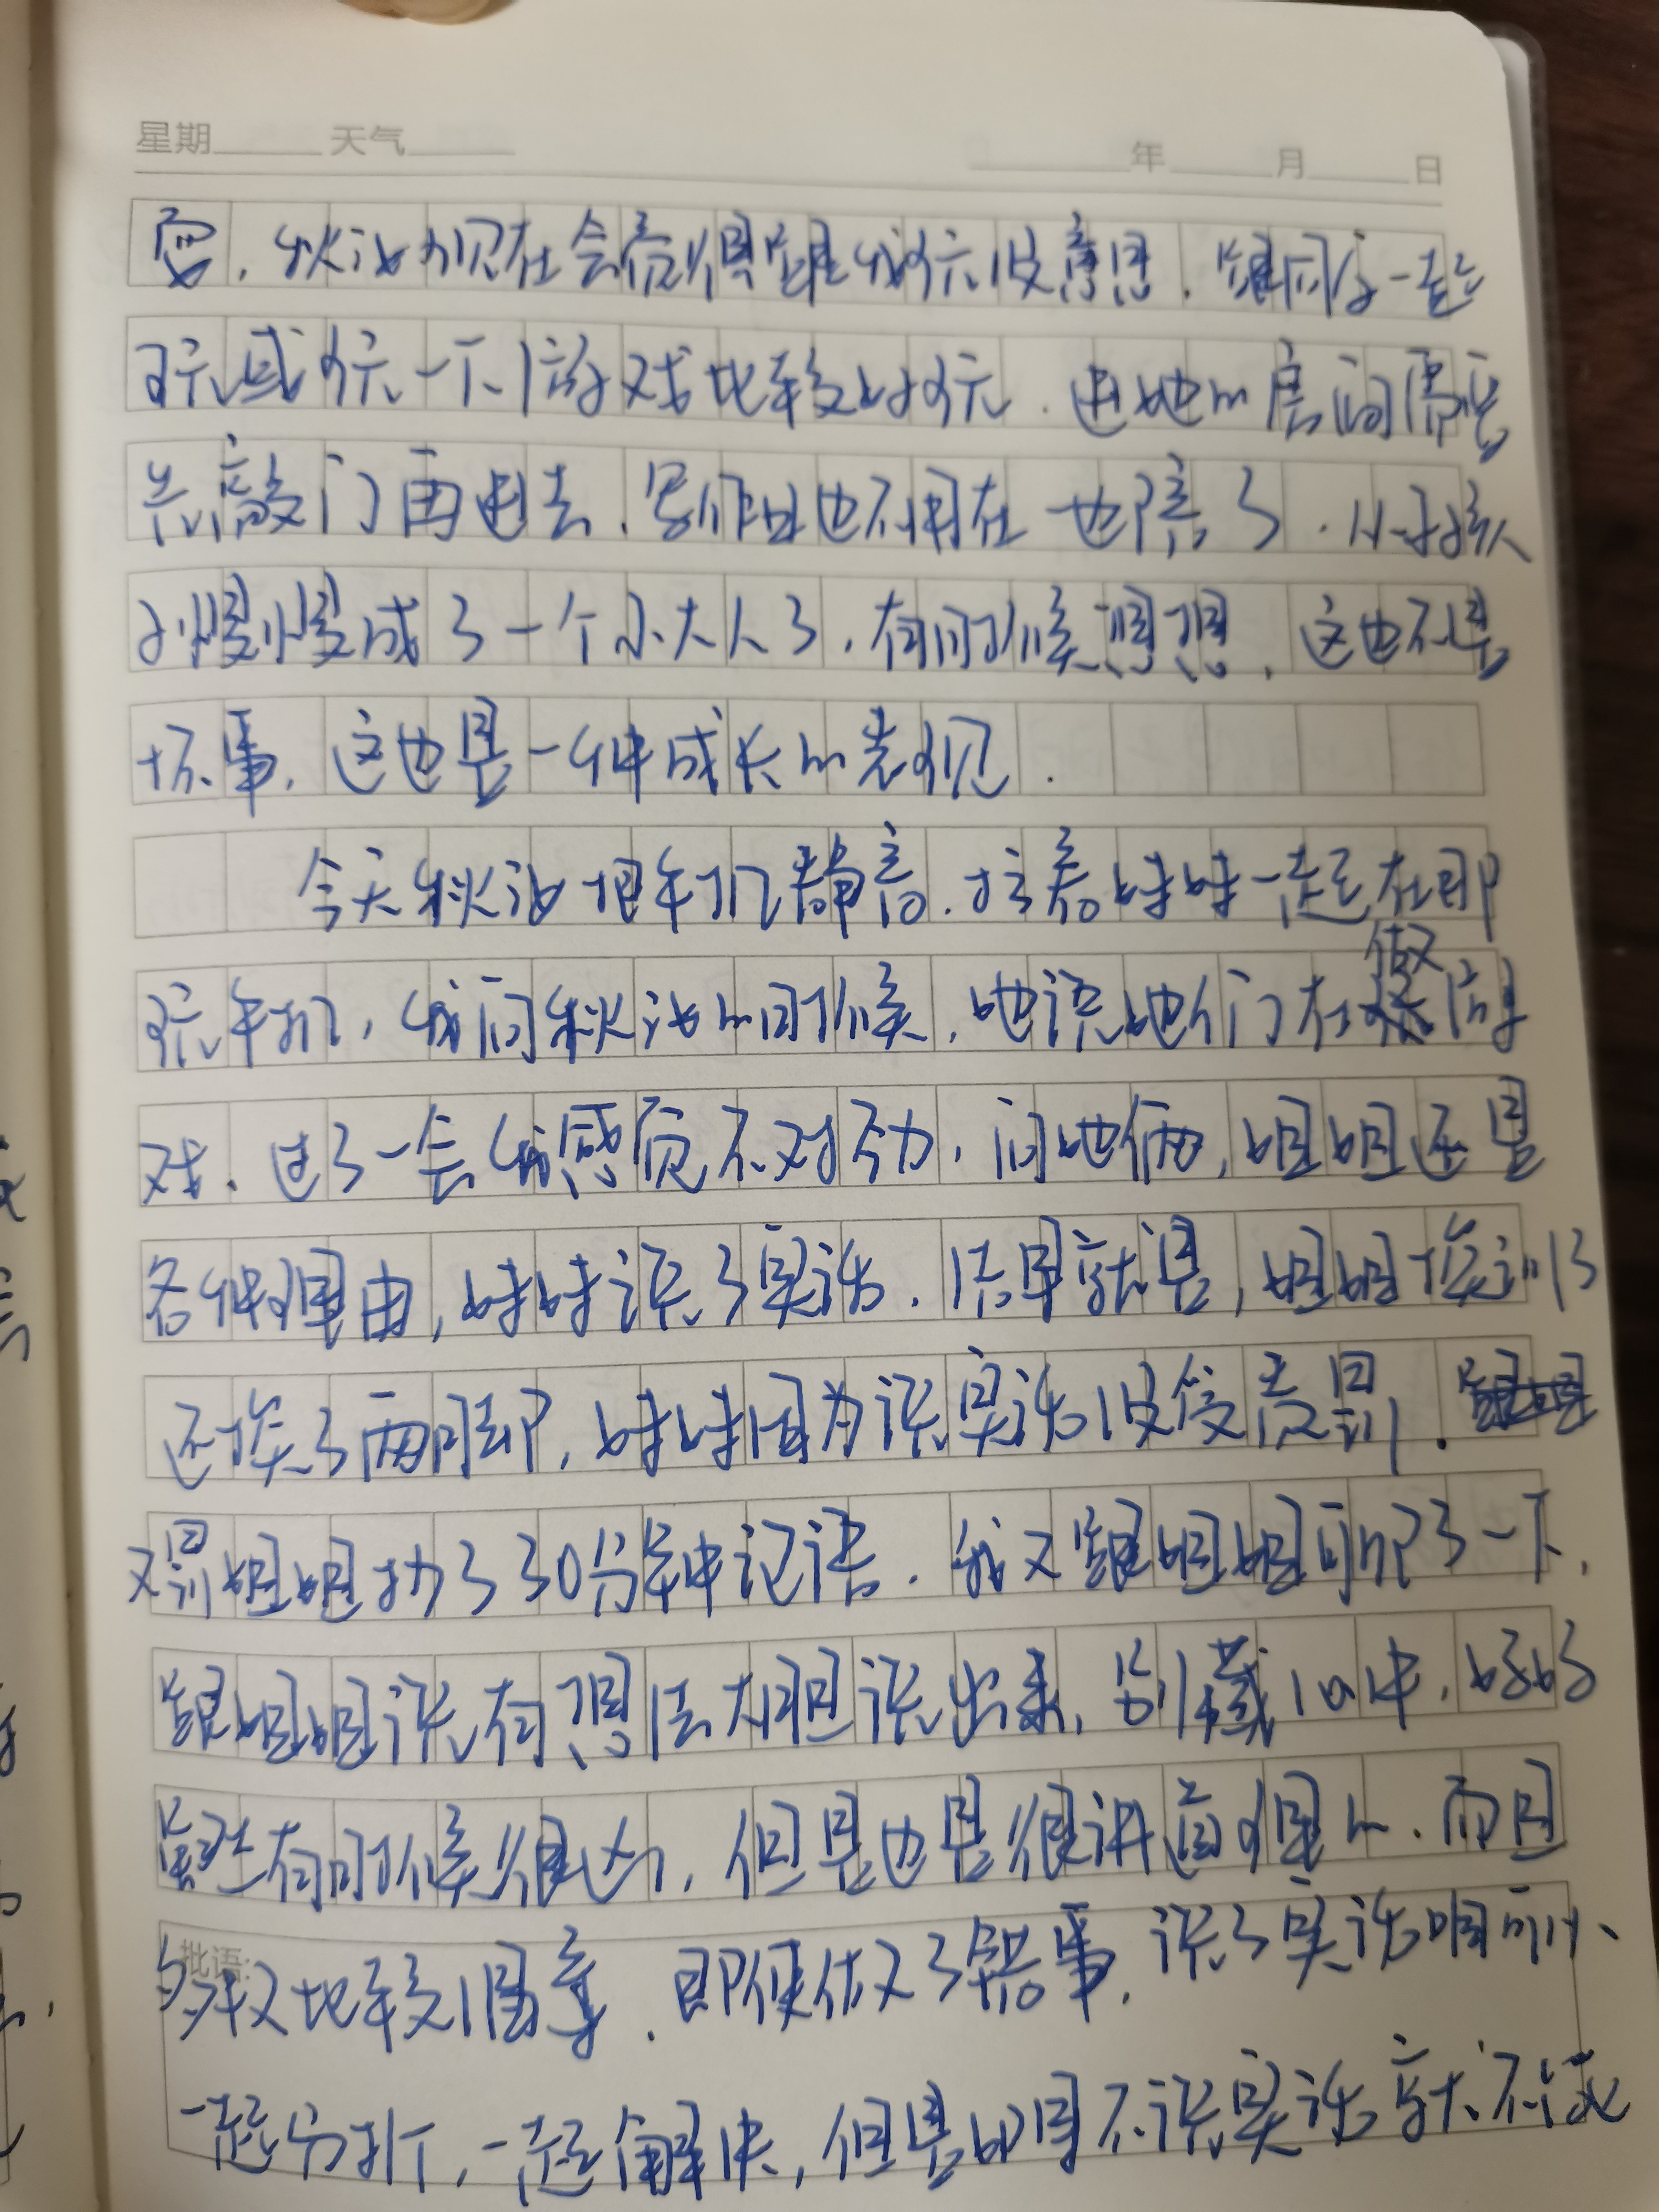 星期 天气 年 月 日
要，秋波现在会觉得跟我玩没意思，跟同学一起
玩或玩一下游戏比较好玩．进她的房间需要
先敲门再进去，写作业也不用在一边陪了．小女孩
慢慢成了一个小大人了，有时候想想，这也不是
坏事，这也是一种成长的表现．
今天秋波把手机静音，拉着妹妹一起在那
玩手机，我问秋波的时候，她说她们在做游
戏．过了一会我感觉不对劲，问她俩，姐姐还是
各种理由，妹妹说了实话．结果就是，姐姐挨训了
还挨了两脚，妹妹因为说实话没受责罚．
又罚姐姐抄了30分钟记语．我又跟姐姐聊了一下，
跟姐姐说有想法大胆说出来，别藏心中，爸爸
有时候很凶，但是也是很讲道理的．而且
多数比较温柔．即使做了错事，说了实话咱可以
批语:
一起分析，一起解决，但是如果不说实话就不仅